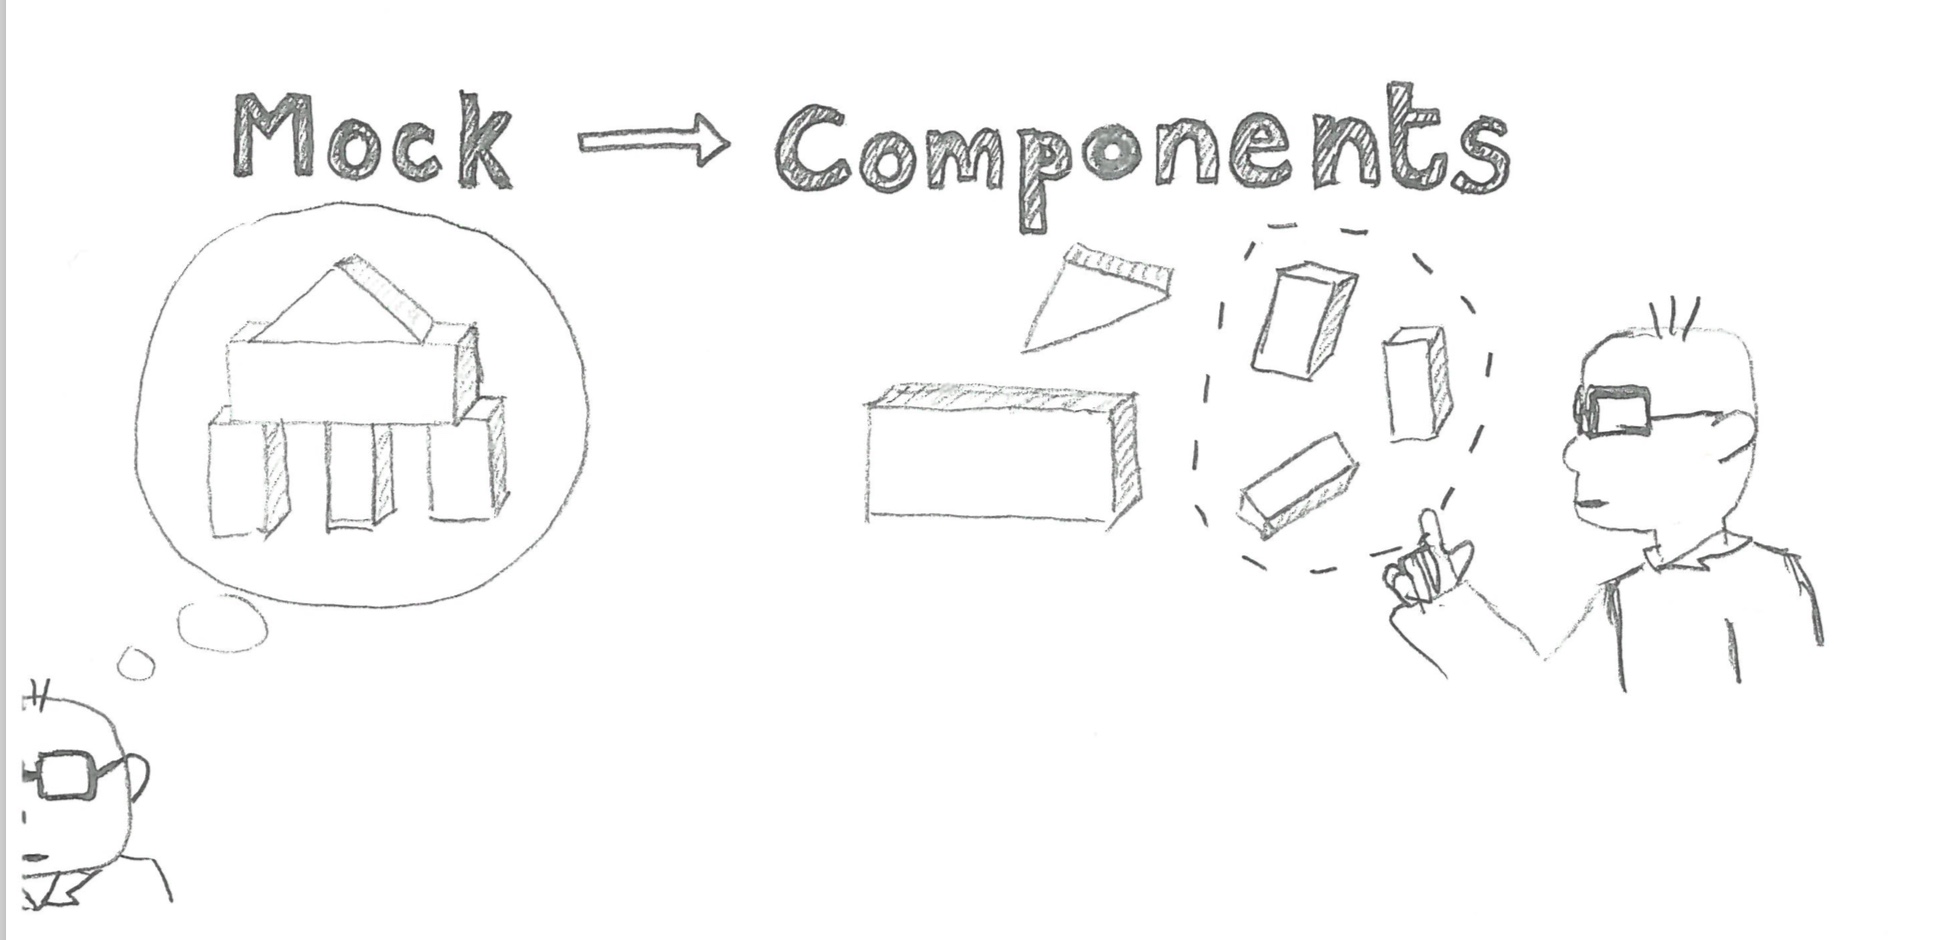 Mock → Components